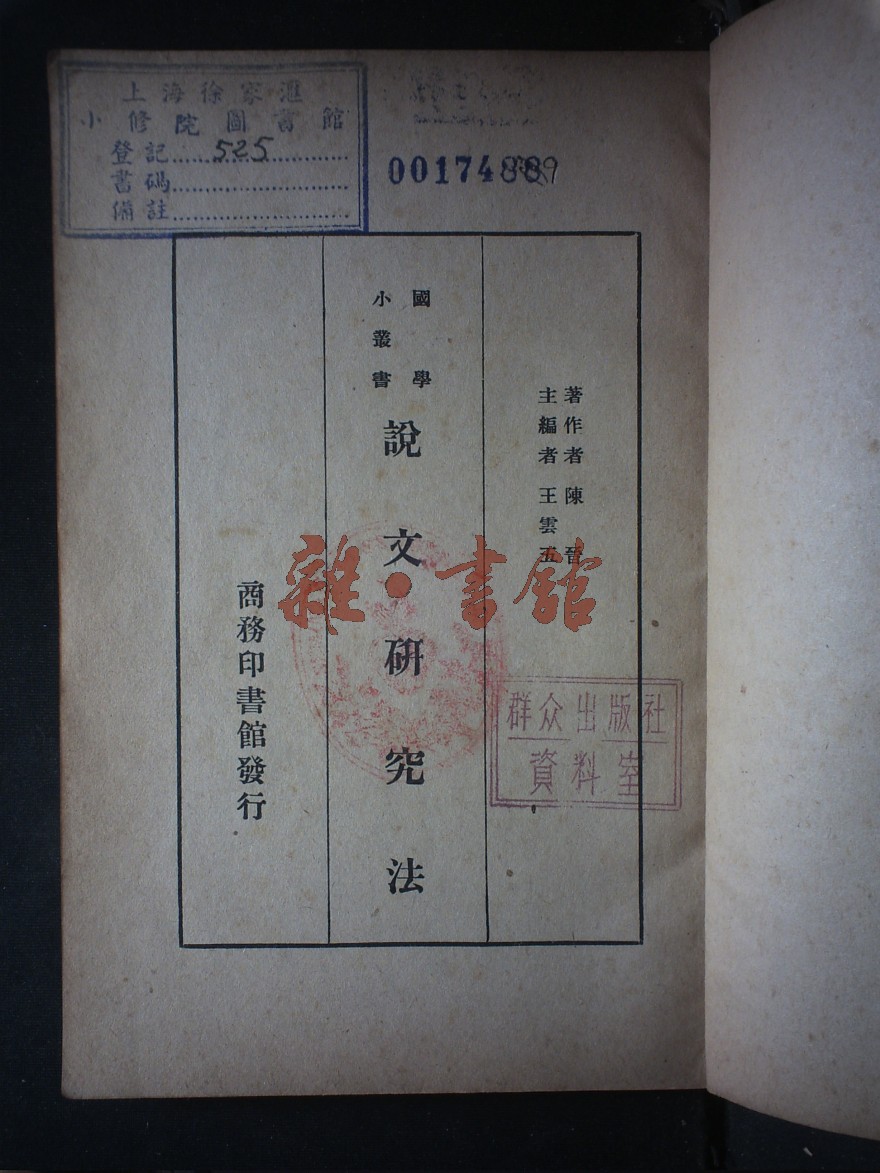 上海徐家滙
小修院圖書館
登記 525
書碼
備註
00174889
著作者 陳晉
主編者 王雲五
國學
小叢書
說文研究法
商務印書館發行
雜·書館
群众出版社
資料室